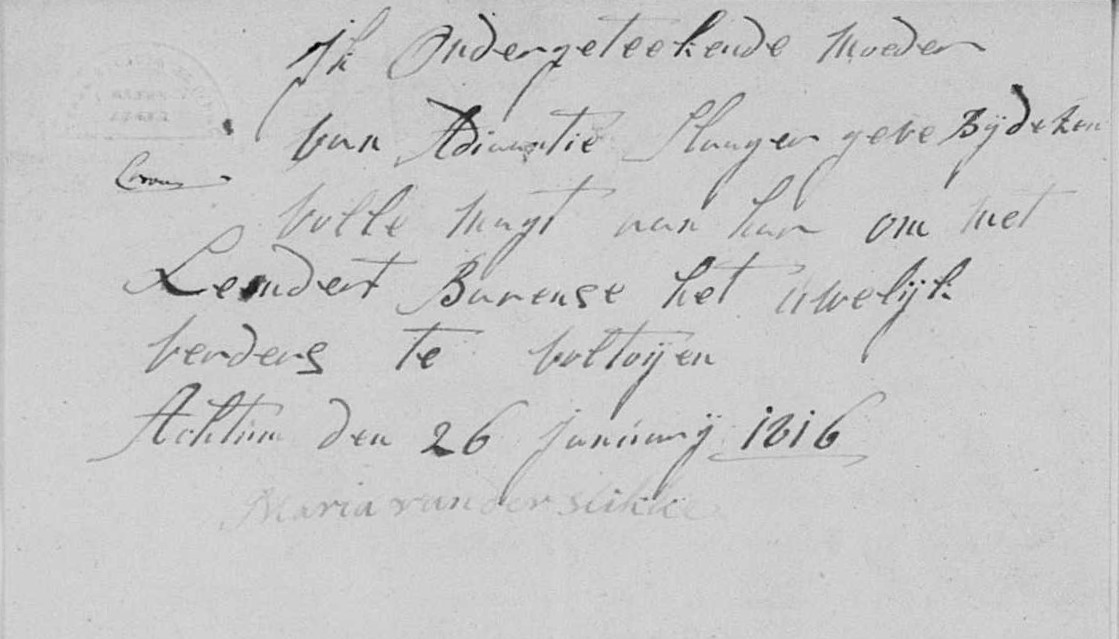 Ik Ondergeteekende Moeder
van Adriaantie Slanger geve Bijdezen
volle magt aan har om met
Leendert Burense het uwelijk
verders te voltoijen
Achtum den 26 Januarij 1816
Maria van der slikke